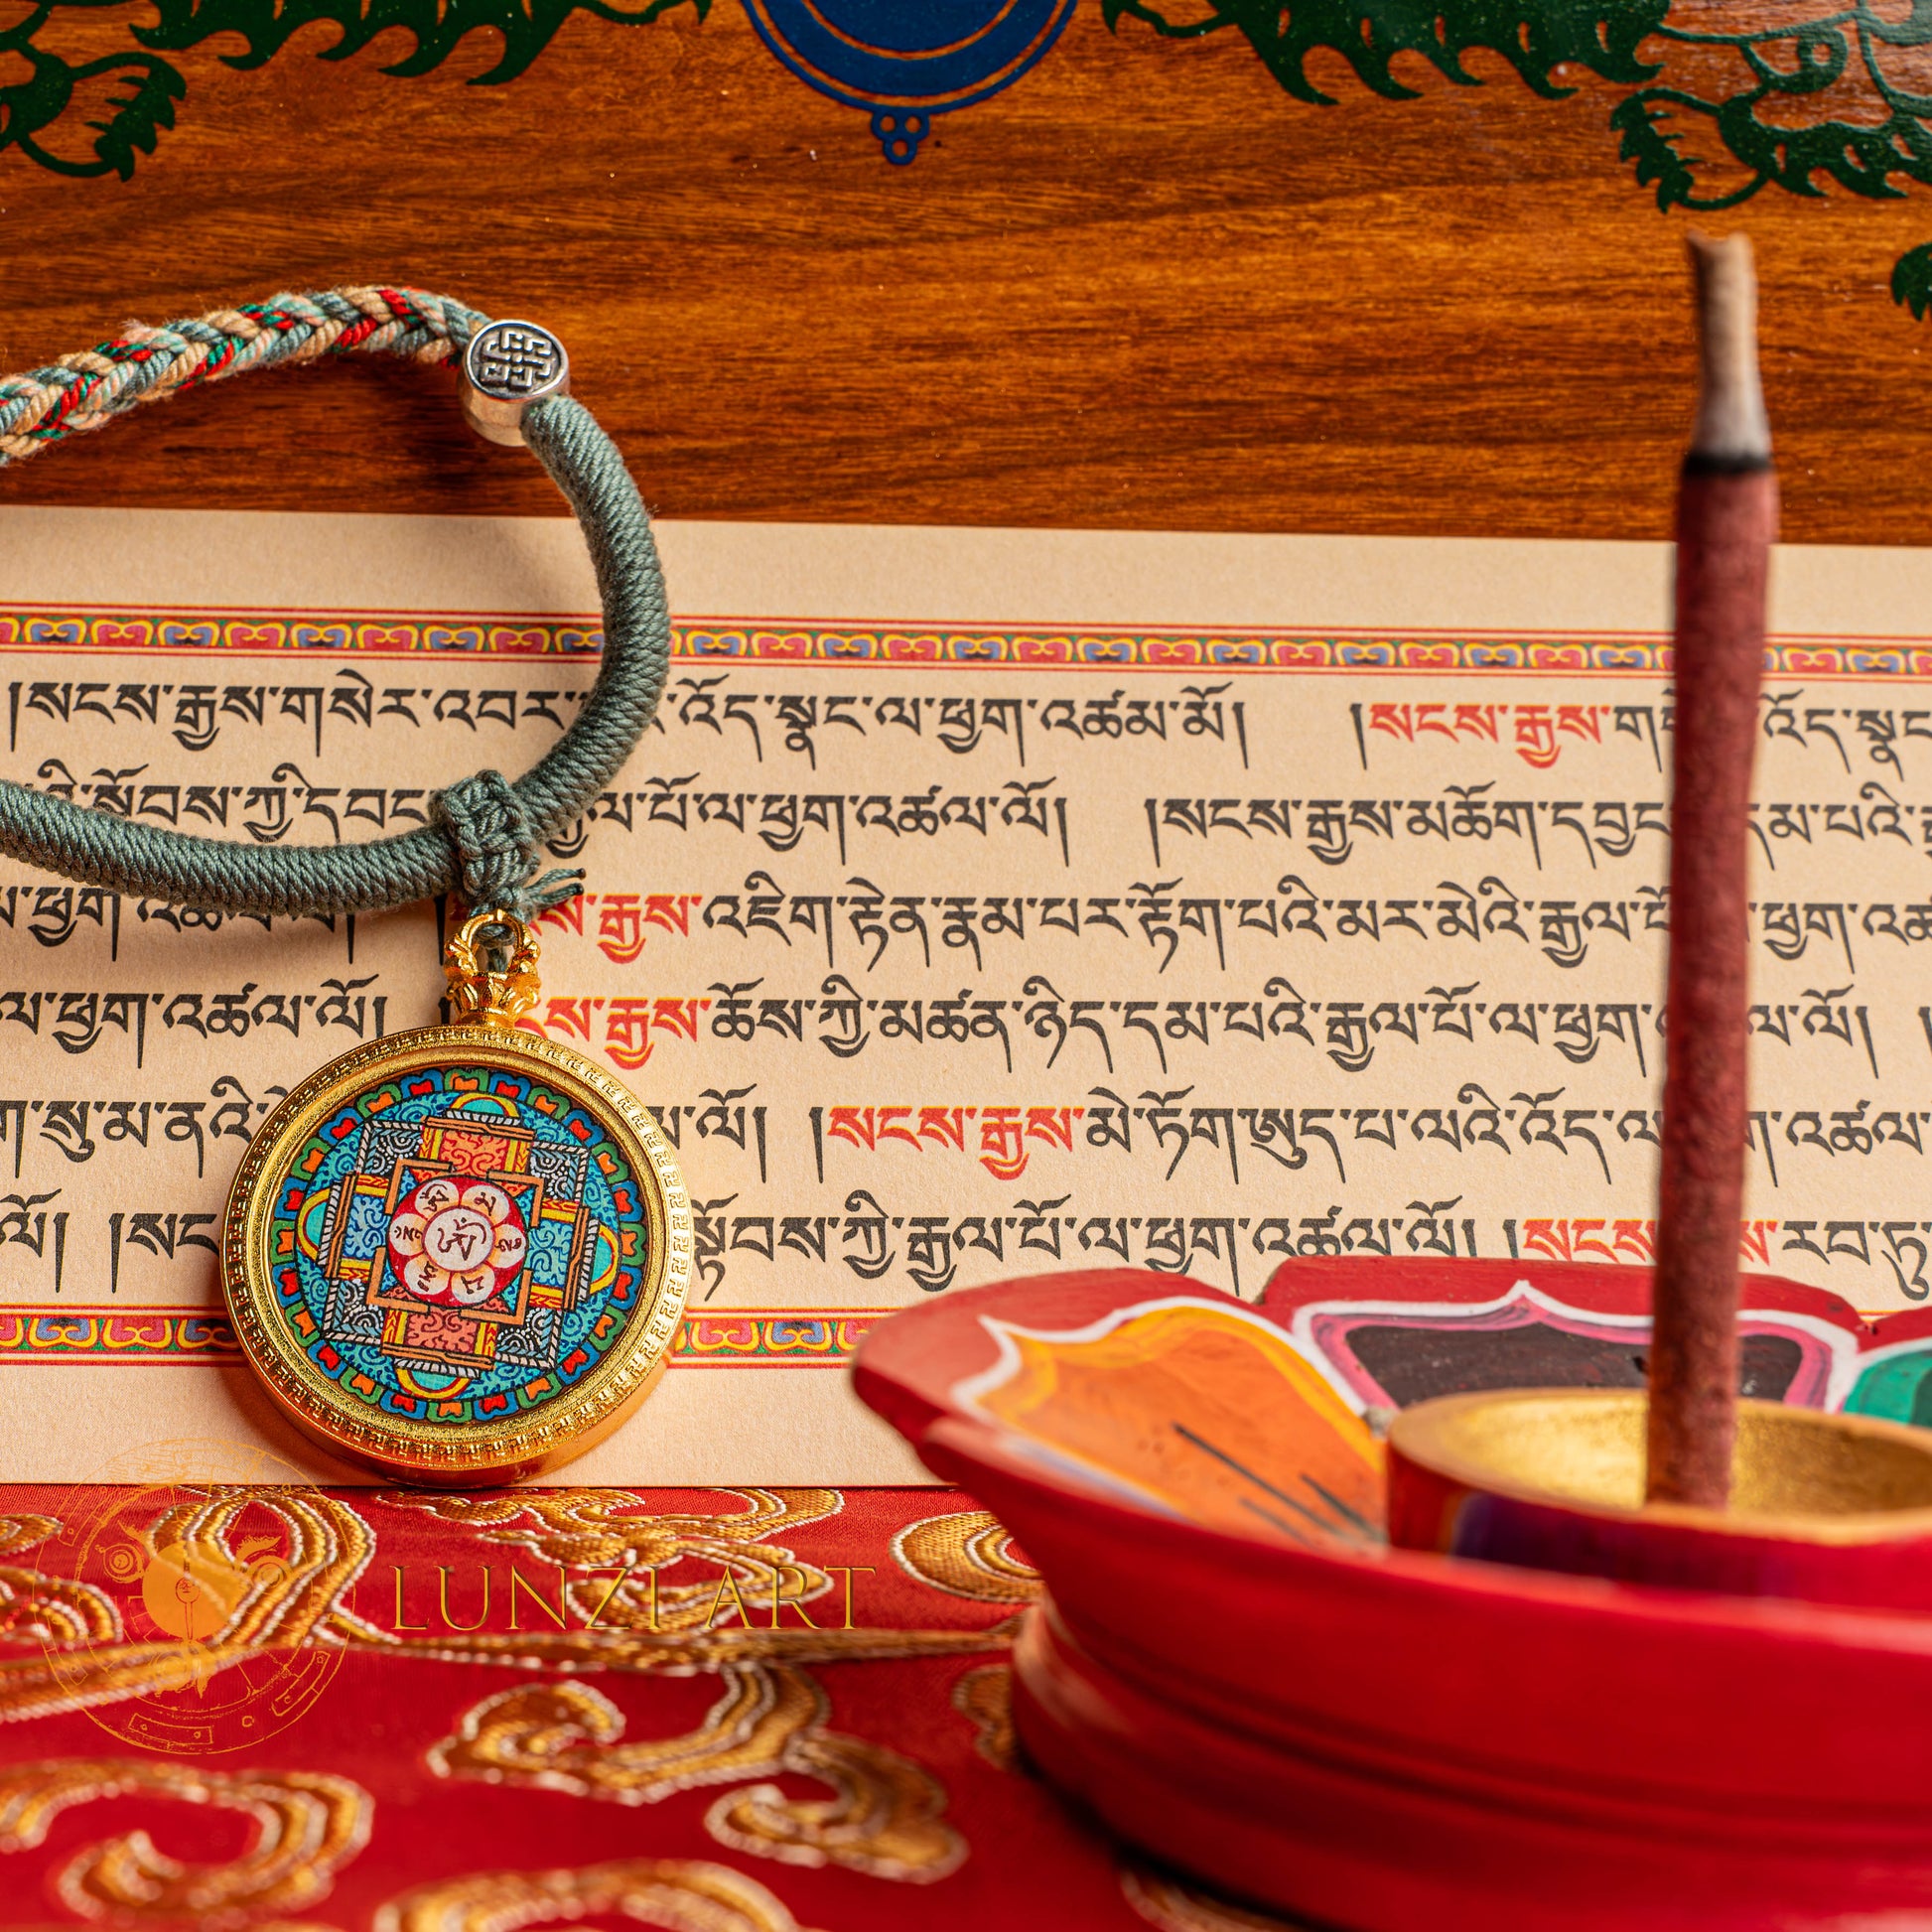 །སངས་རྒྱས་གསེར་འབར་ འོད་སྣང་ལ་ཕྱག་འཚམ་མོ། །སངས་རྒྱས་ འོད་སྣང
སྟོབས་ཀྱི་དབང་ ལ་པོ་ལ་ཕྱག་འཚལ་ལོ། །སངས་རྒྱས་མཆོག་དབྱང དམ་པའི་
ཕྱག་འཚལ་ལོ། རྒྱས་འཇིག་རྟེན་རྣམ་པར་རྟོག་པའི་མར་མེའི་རྒྱལ་པོ ཕྱག་འཚ
ལ་ཕྱག་འཚལ་ལོ། རྒྱས་ཆོས་ཀྱི་མཚན་ཉིད་དམ་པའི་རྒྱལ་པོ་ལ་ཕྱག་ ལ་ལོ།
ག་སུ་མ་ནའི་ ལ་ལོ། །སངས་རྒྱས་མེ་ཏོག་ཨུད་པ་ལའི་འོད་ལ འཚལ་
ལོ། །སང སྟོབས་ཀྱི་རྒྱལ་པོ་ལ་ཕྱག་འཚལ་ལོ། །སངས རབ་ཏུ
ཨོཾ
LUNZI ART